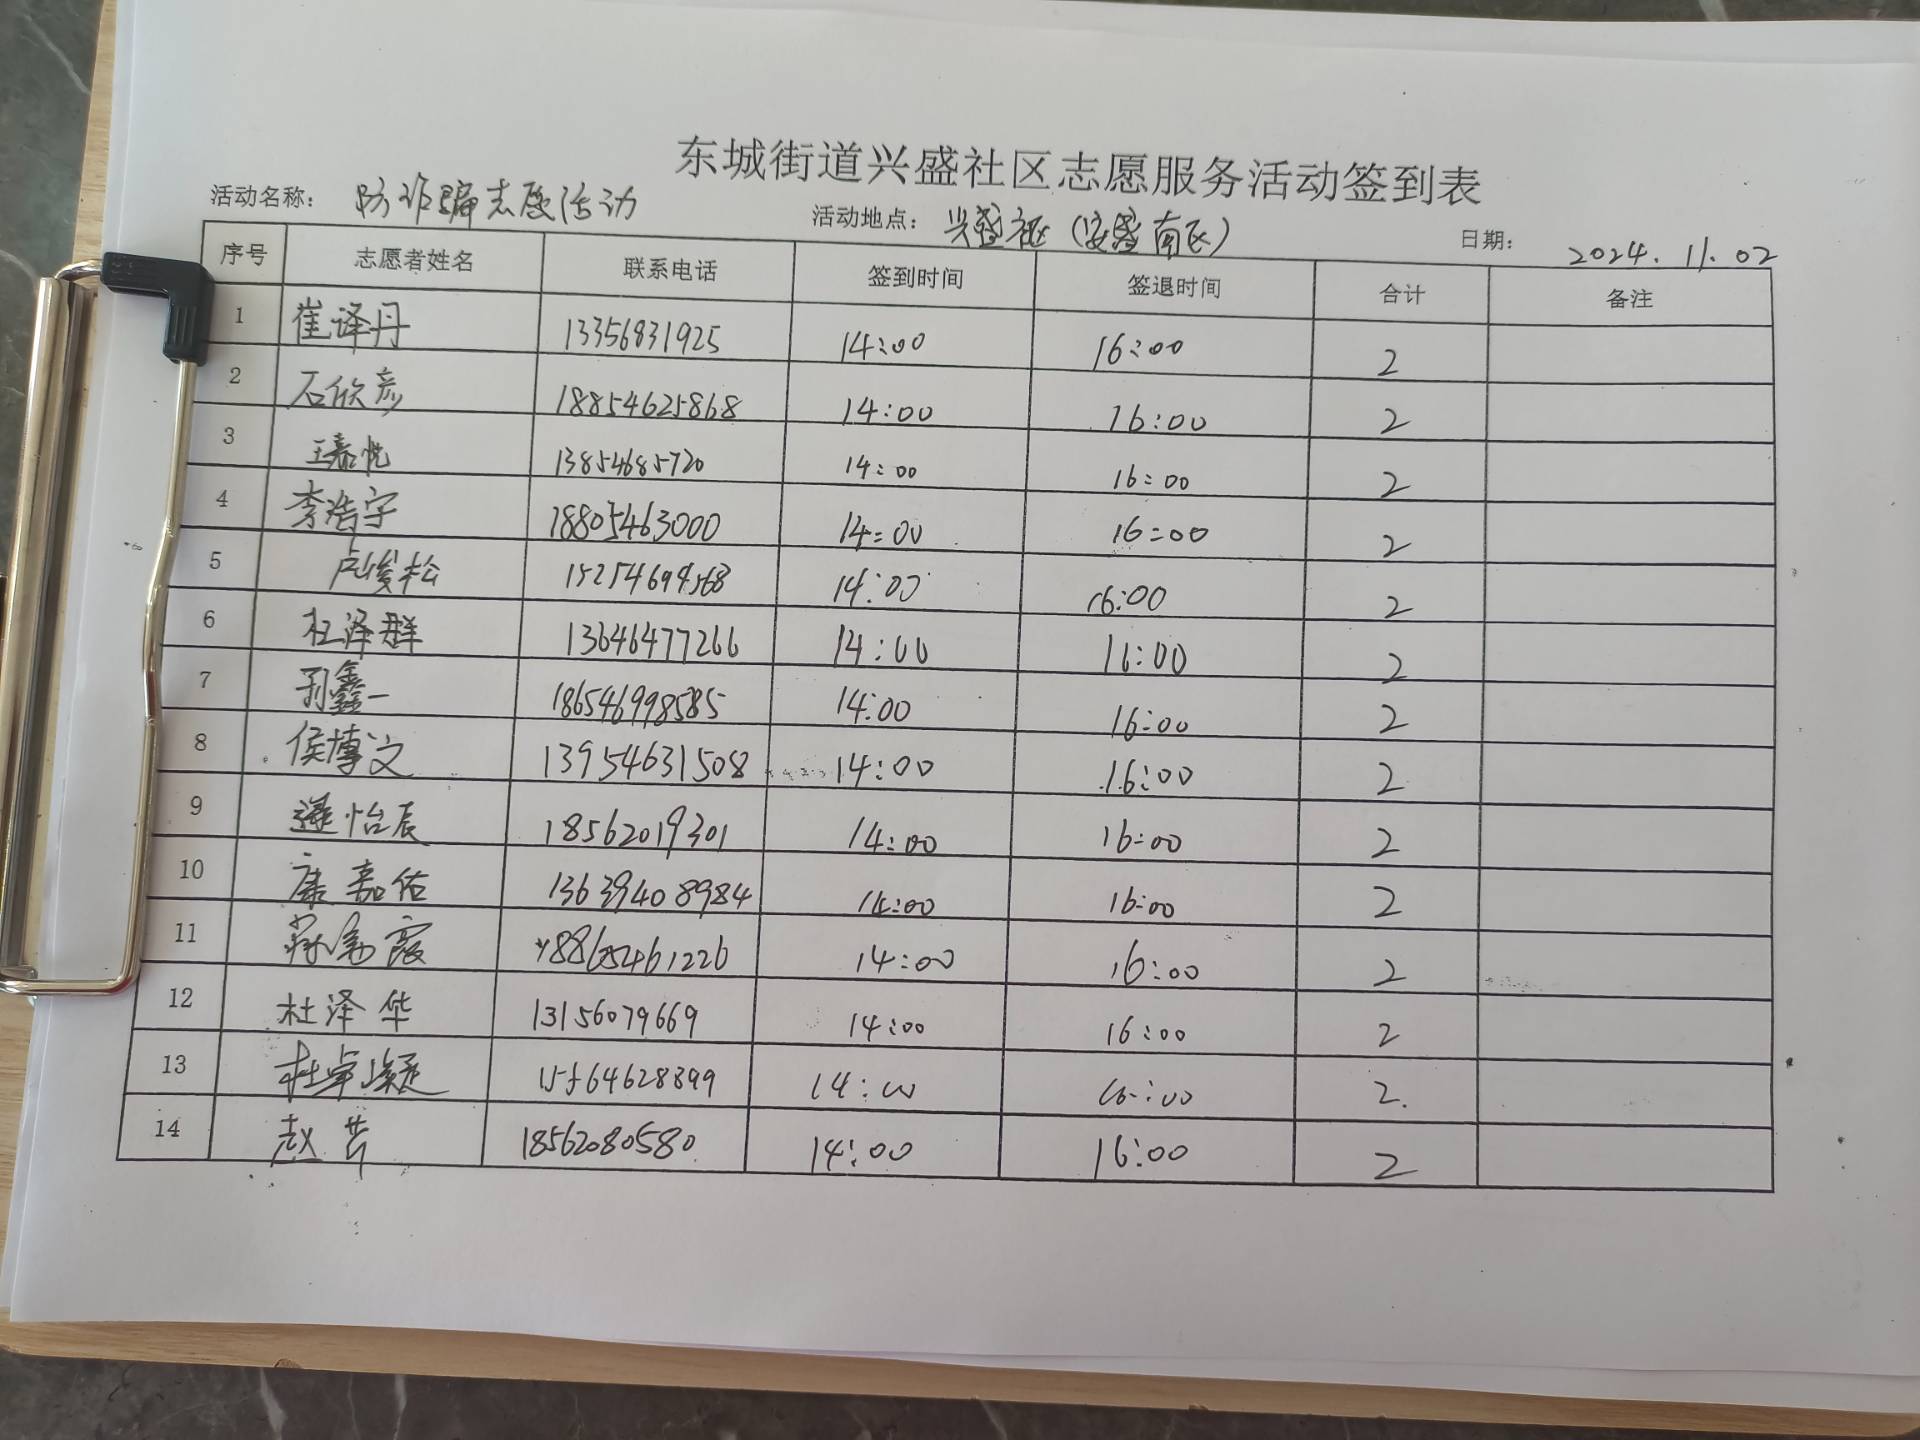 东城街道兴盛社区志愿服务活动签到表
活动名称： 防诈骗志愿活动 活动地点： 兴盛社区（安盛南区） 日期： 2024.11.02
序号 志愿者姓名 联系电话 签到时间 签退时间 合计 备注
1 崔译丹 13356831925 14:00 16:00 2
2 石欣彦 18854625868 14:00 16:00 2
3 王嘉悦 13854685720 14:00 16:00 2
4 李浩宇 18805463000 14:00 16:00 2
5 卢俊松 15254694568 14:00 16:00 2
6 杜泽群 13646477266 14:00 16:00 2
7 刘鑫一 186546998585 14:00 16:00 2
8 侯博文 13954631508 14:00 16:00 2
9 怡辰 18562019301 14:00 16:00 2
10 康嘉佑 13639408984 14:00 16:00 2
11 霞 18865461226 14:00 16:00 2
12 杜泽华 13156079669 14:00 16:00 2
13 杜卓凝 15564628899 14:00 16:00 2.
14 赵芸 18562080580 14:00 16:00 2